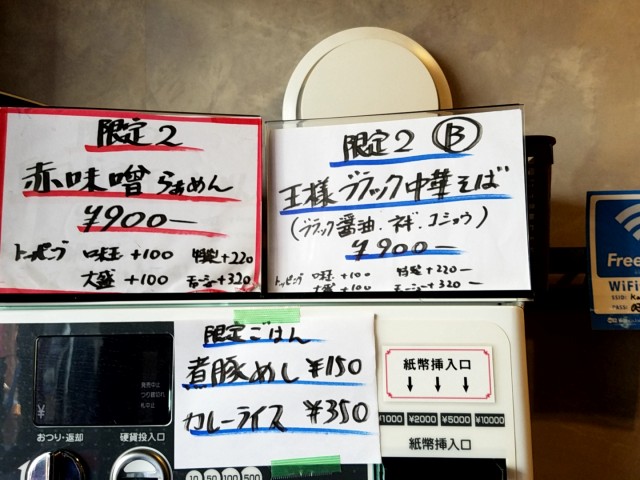 限定2
赤味噌らぁめん
¥900-
トッピング 味玉 +100 特製+220
大盛 +100 チャーシュー+320
限定2 B
王様ブラック中華そば
(ブラック醤油.ネギ.コショウ)
¥900-
トッピング 味玉 +100 特製+220-
大盛 +100 チャーシュー+320-
限定ごはん
煮豚めし ¥150
カレーライス ¥350
紙幣挿入口
↓ ↓ ↓
¥1000 ¥2000 ¥5000 ¥10000
紙幣挿入口
発売中止
つり銭切れ
札中止
¥
おつり・返却
硬貨投入口
10 50 100 500
Free
WiFi
SSID: